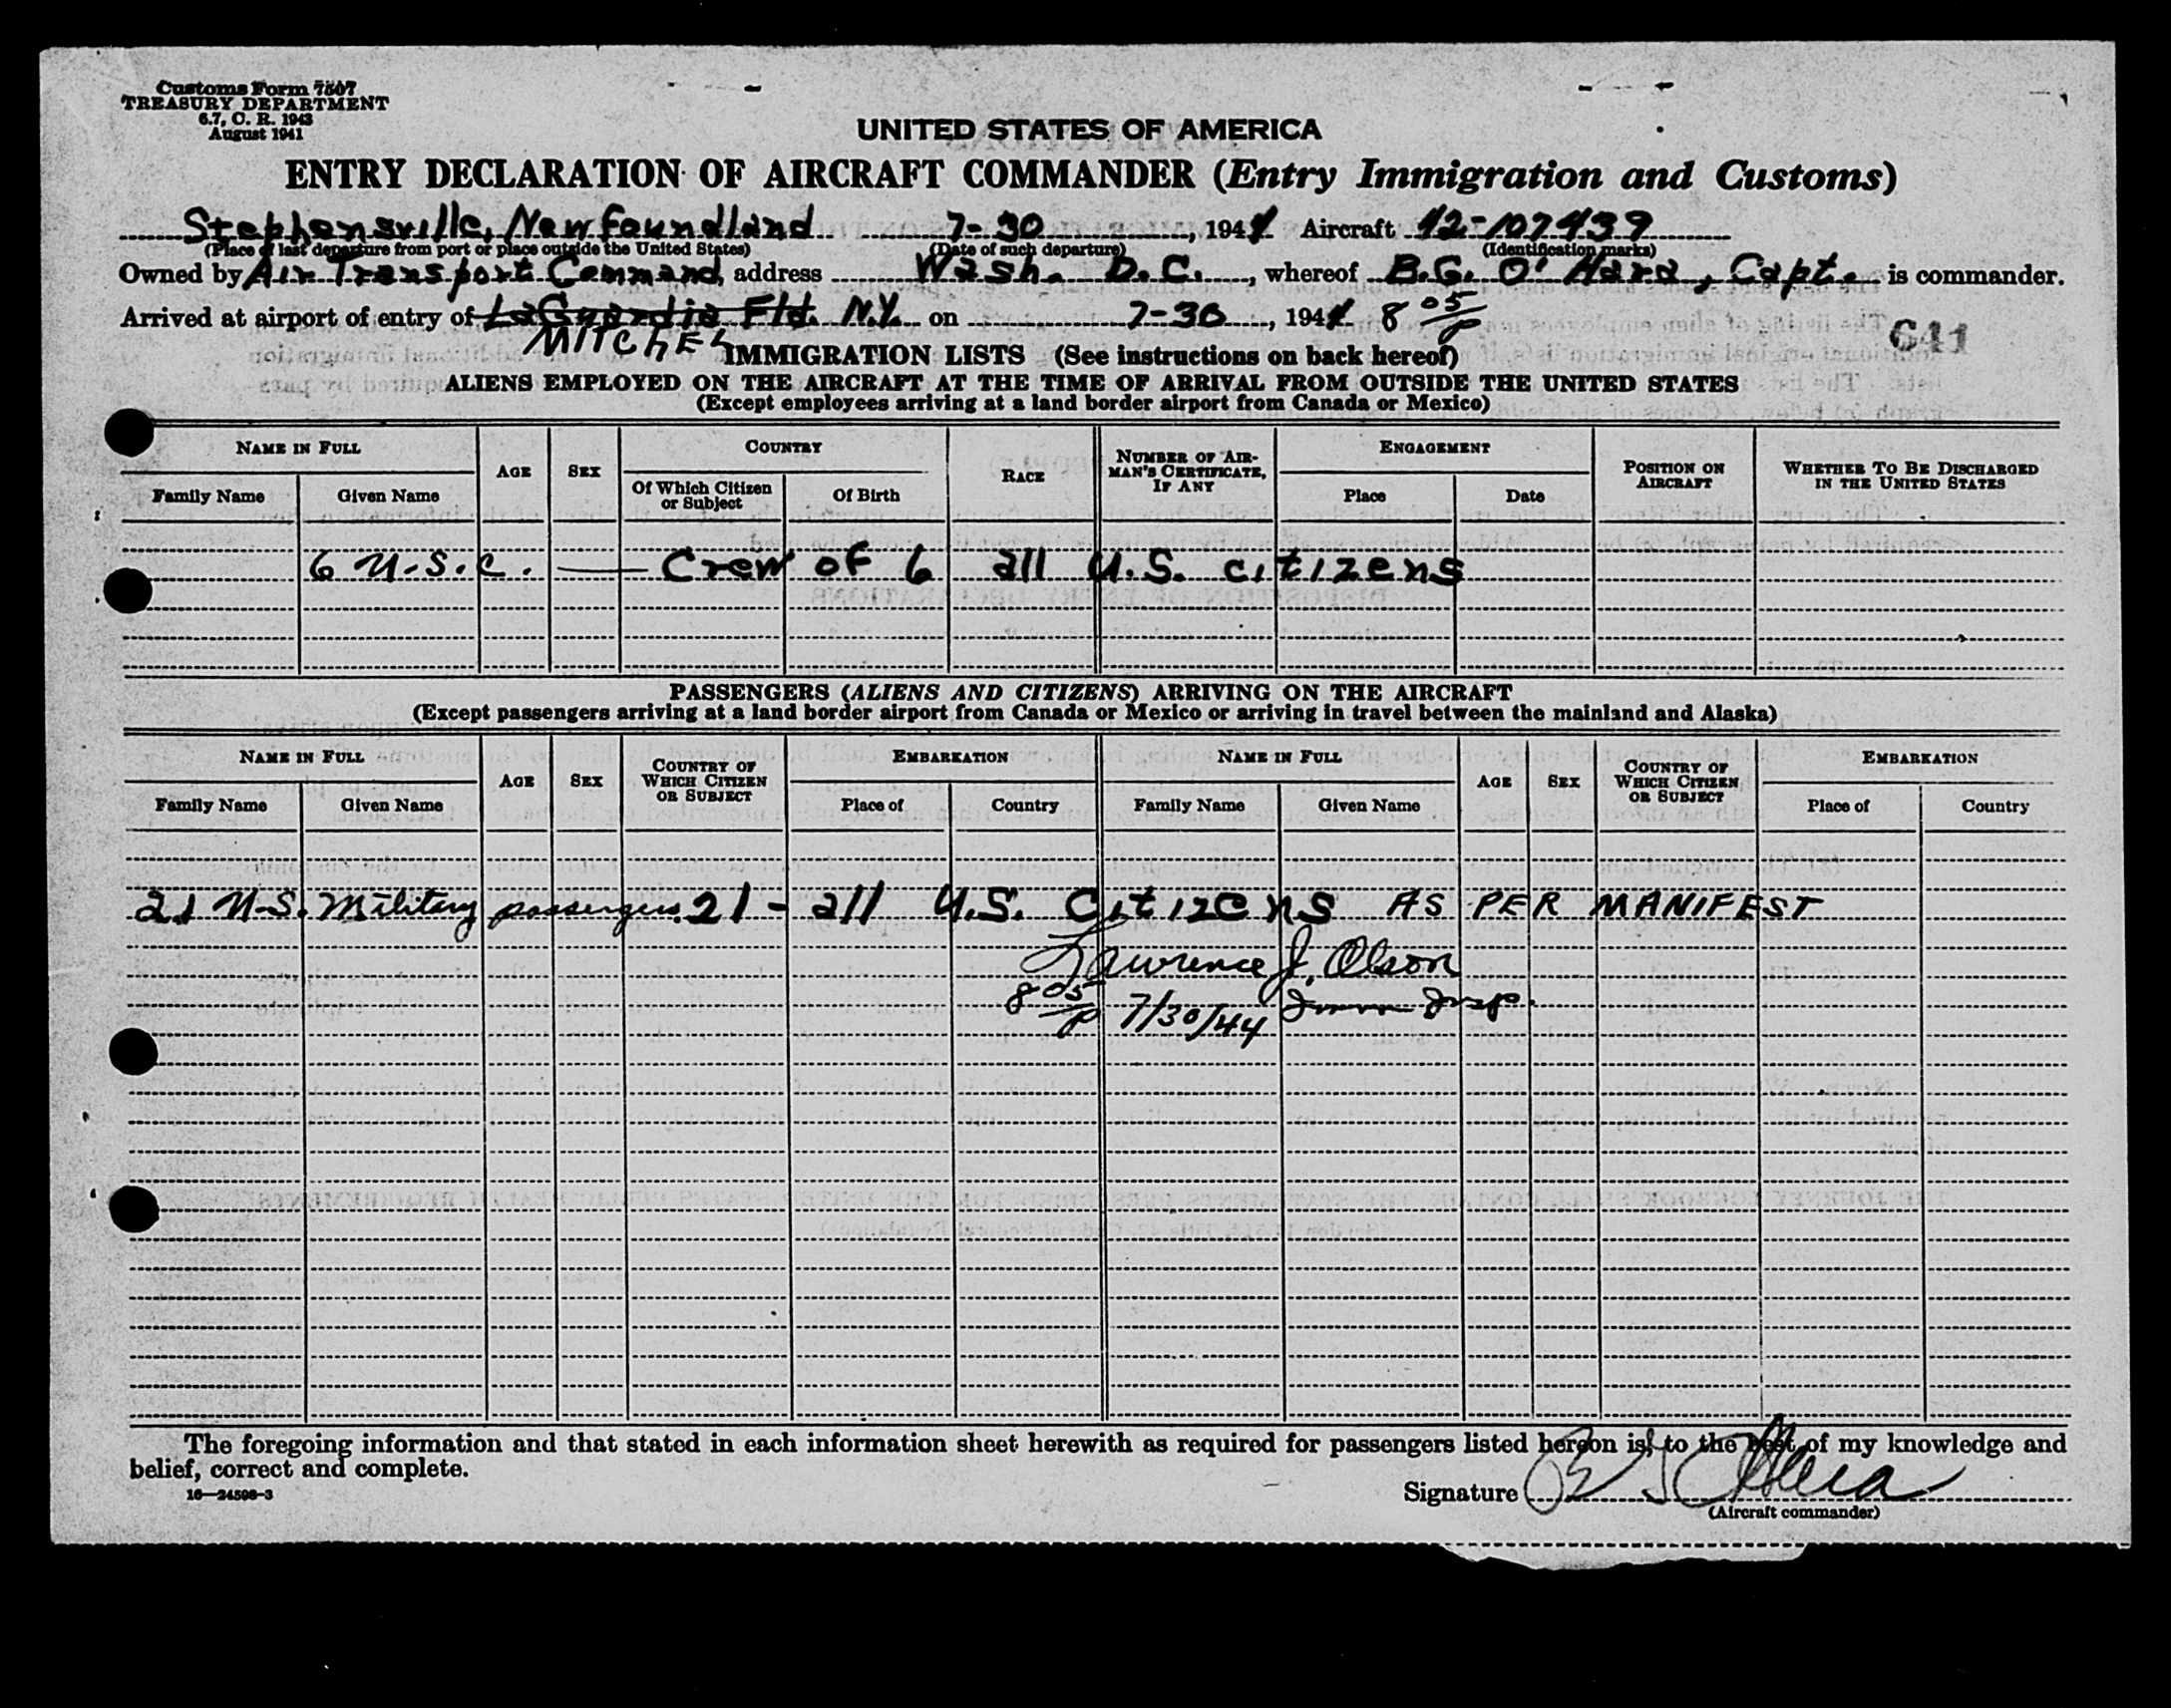 Customs Form 7507
TREASURY DEPARTMENT
6.7, C. R. 1943
August 1941
UNITED STATES OF AMERICA
ENTRY DECLARATION OF AIRCRAFT COMMANDER (Entry Immigration and Customs)
Stephensville, Newfoundland 7-30, 1944 Aircraft 42-107439
(Place of last departure from port or place outside the United States) (Date of such departure) (Identification marks)
Owned by Air Transport Command, address Wash. D.C., whereof B.G. O'Hara, Capt. is commander.
Arrived at airport of entry of LaGuardia Fld. N.Y. on 7-30, 1944 8 05/P
MITCHEL
641
IMMIGRATION LISTS (See instructions on back hereof)
ALIENS EMPLOYED ON THE AIRCRAFT AT THE TIME OF ARRIVAL FROM OUTSIDE THE UNITED STATES
(Except employees arriving at a land border airport from Canada or Mexico)
NAME IN FULL AGE SEX COUNTRY RACE NUMBER OF AIRMAN'S CERTIFICATE, IF ANY ENGAGEMENT POSITION ON AIRCRAFT WHETHER TO BE DISCHARGED IN THE UNITED STATES
Family Name Given Name Of Which Citizen or Subject Of Birth Place Date
6 U.S.C. — Crew of 6 all U.S. citizens
PASSENGERS (ALIENS AND CITIZENS) ARRIVING ON THE AIRCRAFT
(Except passengers arriving at a land border airport from Canada or Mexico or arriving in travel between the mainland and Alaska)
NAME IN FULL AGE SEX COUNTRY OF WHICH CITIZEN OR SUBJECT EMBARKATION NAME IN FULL AGE SEX COUNTRY OF WHICH CITIZEN OR SUBJECT EMBARKATION
Family Name Given Name Place of Country Family Name Given Name Place of Country
21 U.S. Military passengers. 21 - all U.S. Citizens AS PER MANIFEST
Lawrence J. Olson
8 05/P 7/30/44 Imm Insp.
The foregoing information and that stated in each information sheet herewith as required for passengers listed hereon is, to the best of my knowledge and
belief, correct and complete.
16—24598-3
Signature B G O'Hara
(Aircraft commander)